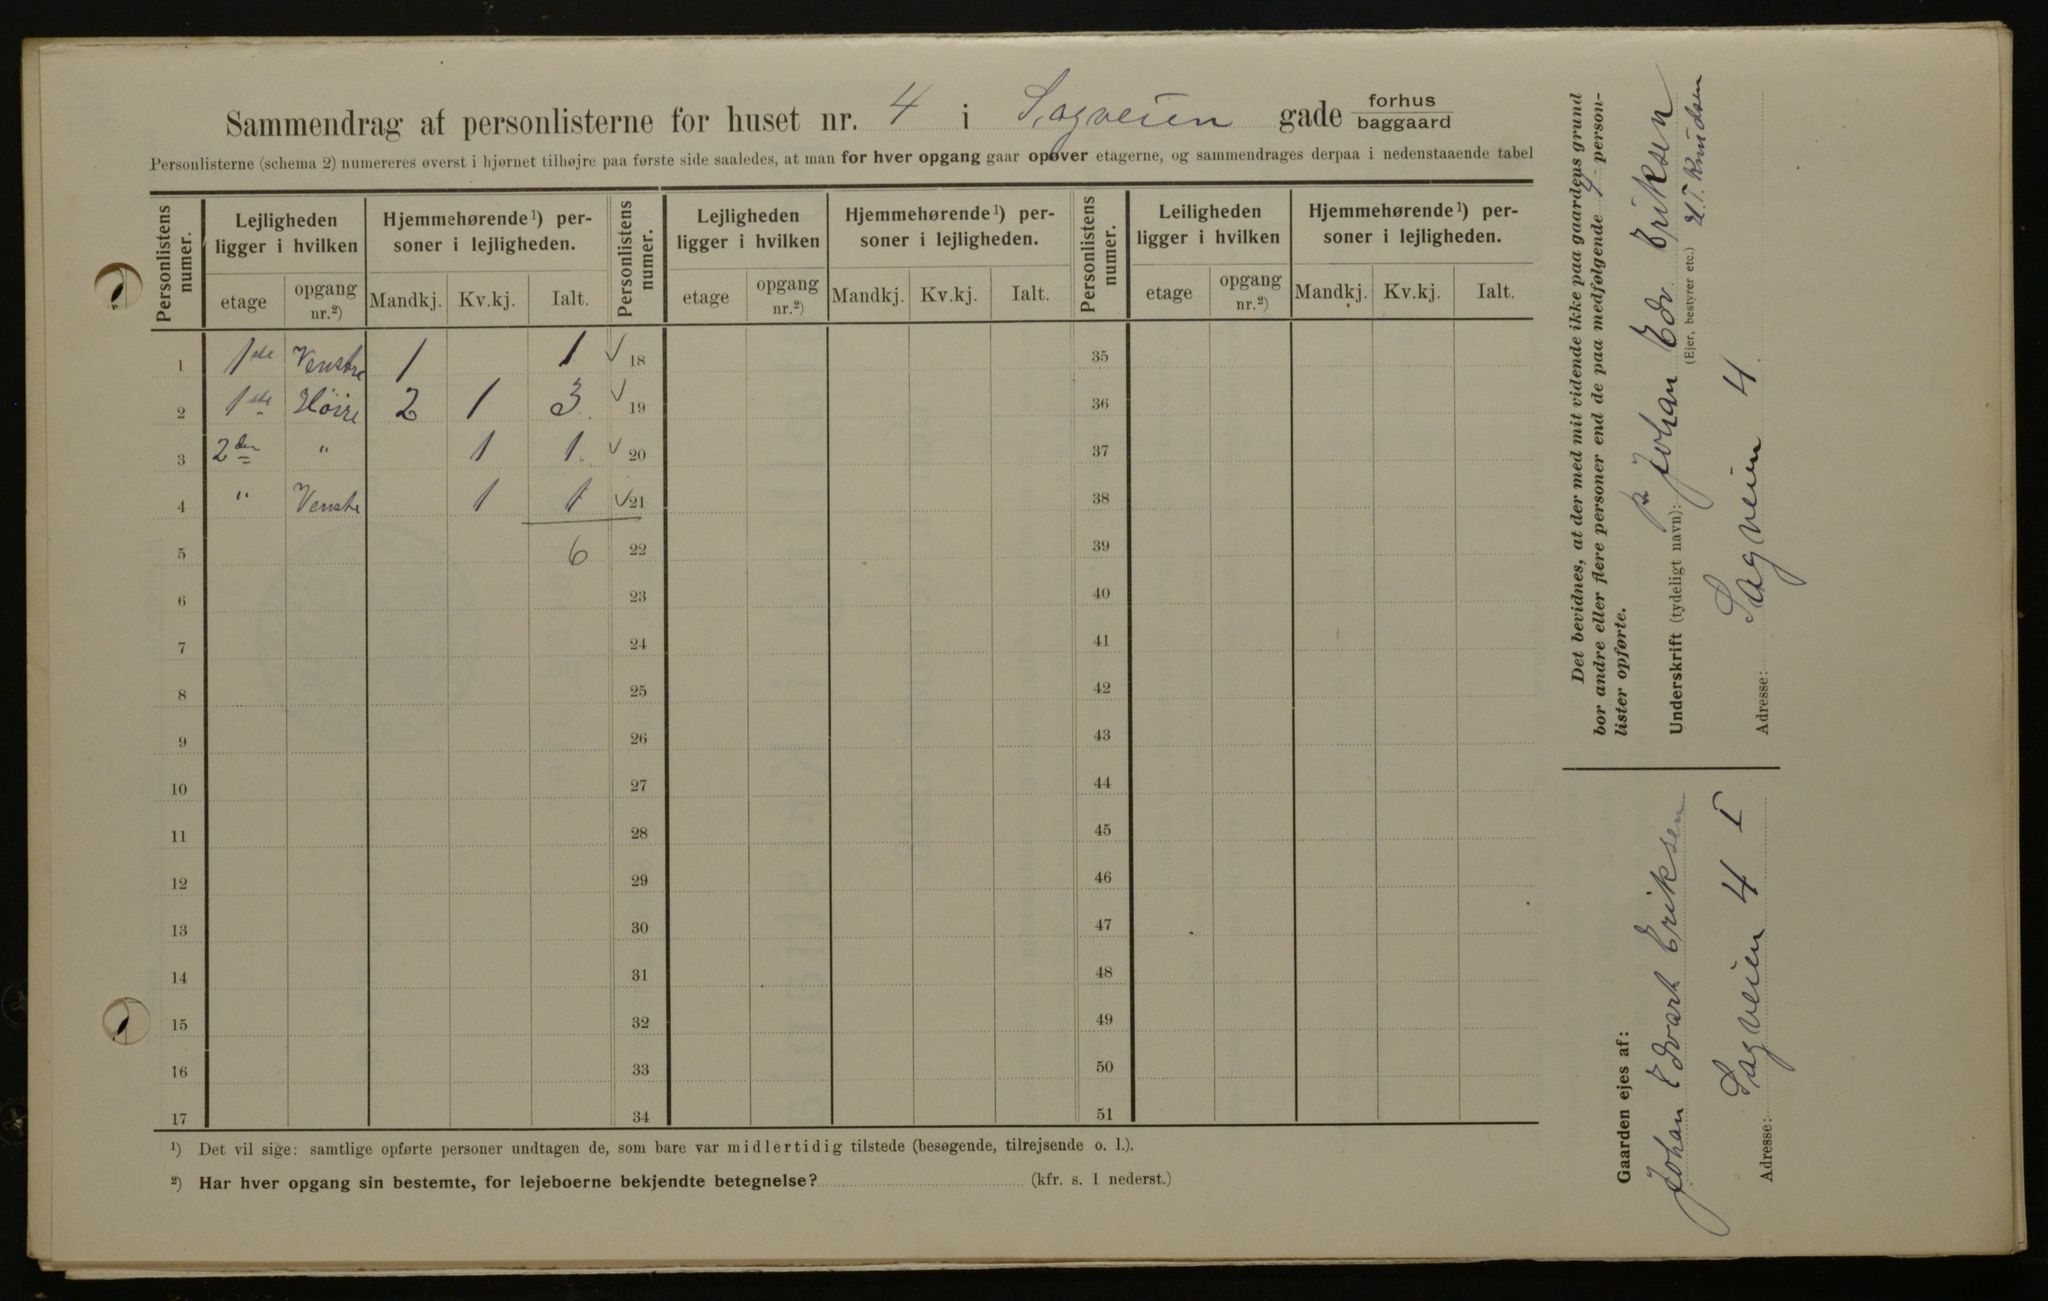 Sammendrag af personlisterne for huset nr. 4 i Sagveien gade forhus
baggaard
Personlisterne (schema 2) numereres øverst i hjørnet tilhøjre paa første side saaledes, at man for hver opgang gaar opover etagerne, og sammendrages derpaa i nedenstaaende tabel
Personlistens numer. Lejligheden ligger i hvilken Hjemmehørende¹) personer i lejligheden. Personlistens numer. Lejligheden ligger i hvilken Hjemmehørende¹) personer i lejligheden. Personlistens numer. Leiligheden ligger i hvilken Hjemmehørende¹) personer i lejligheden.
etage opgang nr.²) Mandkj. Kv.kj. Ialt. etage opgang nr.²) Mandkj. Kv.kj. Ialt. etage opgang nr.²) Mandkj. Kv.kj. Ialt.
1 1ste Venstre 1 1 ✓ 18 35
2 1ste Høire 2 1 3 ✓ 19 36
3 2den " 1 1 ✓ 20 37
4 " Venstre 1 1 ✓ 21 38
5 6 22 39
6 23 40
7 24 41
8 25 42
9 26 43
10 27 44
11 28 45
12 29 46
13 30 47
14 31 48
15 32 49
16 33 50
17 34 51
¹) Det vil sige: samtlige opførte personer undtagen de, som bare var midlertidig tilstede (besøgende, tilrejsende o. l.).
²) Har hver opgang sin bestemte, for lejeboerne bekjendte betegnelse? (kfr. s. 1 nederst.)
Det bevidnes, at der med mit vidende ikke paa gaardens grund
bor andre eller flere personer end de paa medfølgende 4 person-
lister opførte.
Underskrift (tydeligt navn): Johan Edv Eriksen
(Ejer, bestyrer etc.) Knudsen
Adresse: Sagveien 4
Gaarden ejes af:
Johan Edvart Eriksen
Adresse: Sagveien 4 I